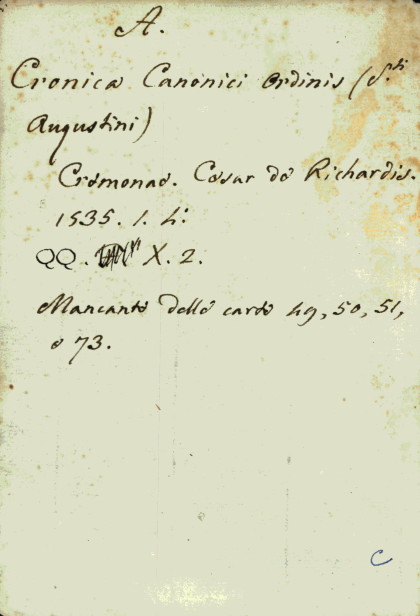 A.
Cronica Canonici Ordinis (S.ti
Augustini)
Cremonae. Cesar de Richardis.
1535. 1. 4:
QQ. X. 2.
Mancante delle carte 49, 50, 51,
e 73.
C